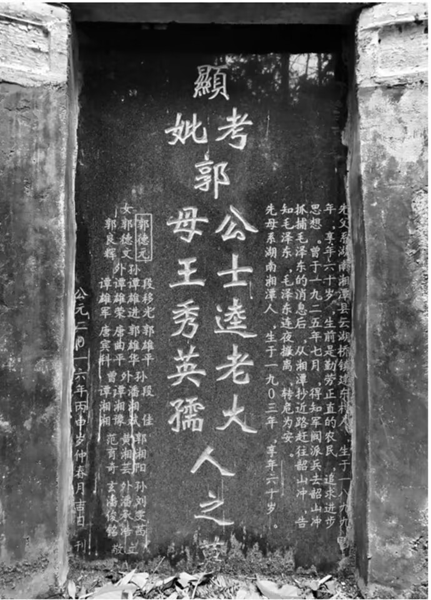 先父系湖南湘潭县云湖桥镇建东村人,生于一八九九
年,享年六十岁,生前是勤劳正直的农民,追求进步
思想。曾于一九二五年七月,得知军阀派兵去韶山冲
抓捕毛泽东的消息后,从湘潭抄近路赶往韶山冲,告
知毛泽东,毛泽东连夜撤离,转危为安。
先母系湖南湘潭人,生于一九〇三年,享年六十岁。
顯
考
妣
郭
公士逵老大人之墓
母王秀英孺
段移光 郭雄平 段佳 郭湘阳
郭德元 孙谭雄进 郭雄华 孙潘湘 孙刘雯茜 立
女郭德文 外谭雄荣 唐曲平 外谭湘豫 黄湘芸 外潘 敬
郭良辉 谭雄军 唐宾科 曾谭湘湘 范育奇 玄潘俊铭
公元二〇一六年丙申岁仲春月吉日 刊